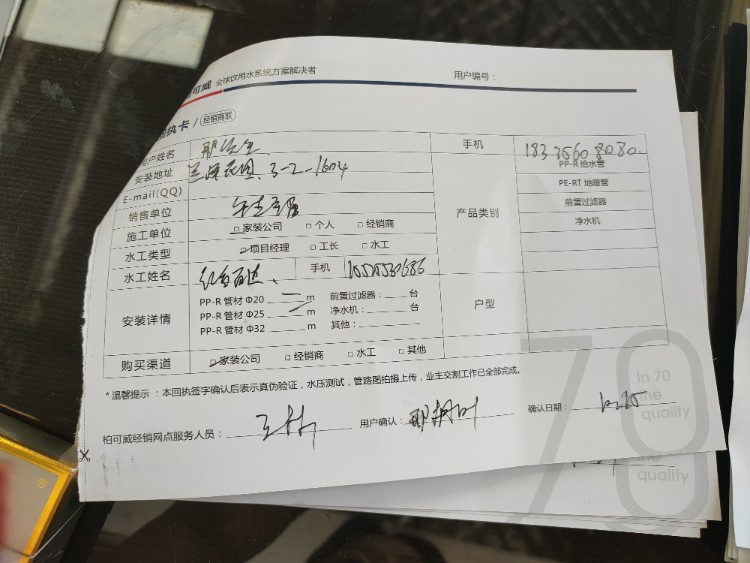 可威 全球饮用水系统方案解决者 用户编号：
执卡 / 经销商联
用户姓名 手机 183 3560 8080
安装地址 3-2-1604 PP-R 给水管
E-mail(QQ) PE-RT 地暖管
销售单位 产品类别 前置过滤器
施工单位 □家装公司 □个人 □经销商 净水机
水工类型 项目经理 □工长 □水工
水工姓名 手机
安装详情 PP-R 管材 Φ20 m 前置过滤器： 台 户型
PP-R 管材 Φ25 m 净水机： 台
PP-R 管材 Φ32 m 其他：
购买渠道 家装公司 □经销商 □水工 □其他
*温馨提示：本回执签字确认后表示真伪验证，水压测试，管路图拍摄上传，业主交割工作已全部完成。
柏可威经销网点服务人员： 用户确认： 确认日期：
70
In 70
the
quality
the
quality